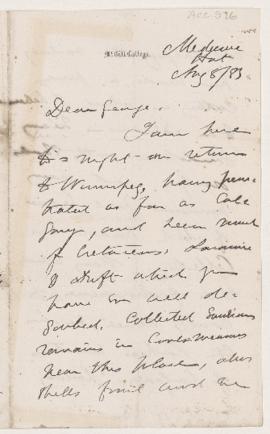 Acc. 596
McGill College.
Medicine
Hat
Aug 8/83
Dear George.
I am here
to night - on return
to Winnipeg, having pene
trated as far as Cal
gary, and seen much
of Cretaceous, Laramie
& drift which you
have so well de
scribed. Collected Saurian
remains in
near this place, also
shells fruit and